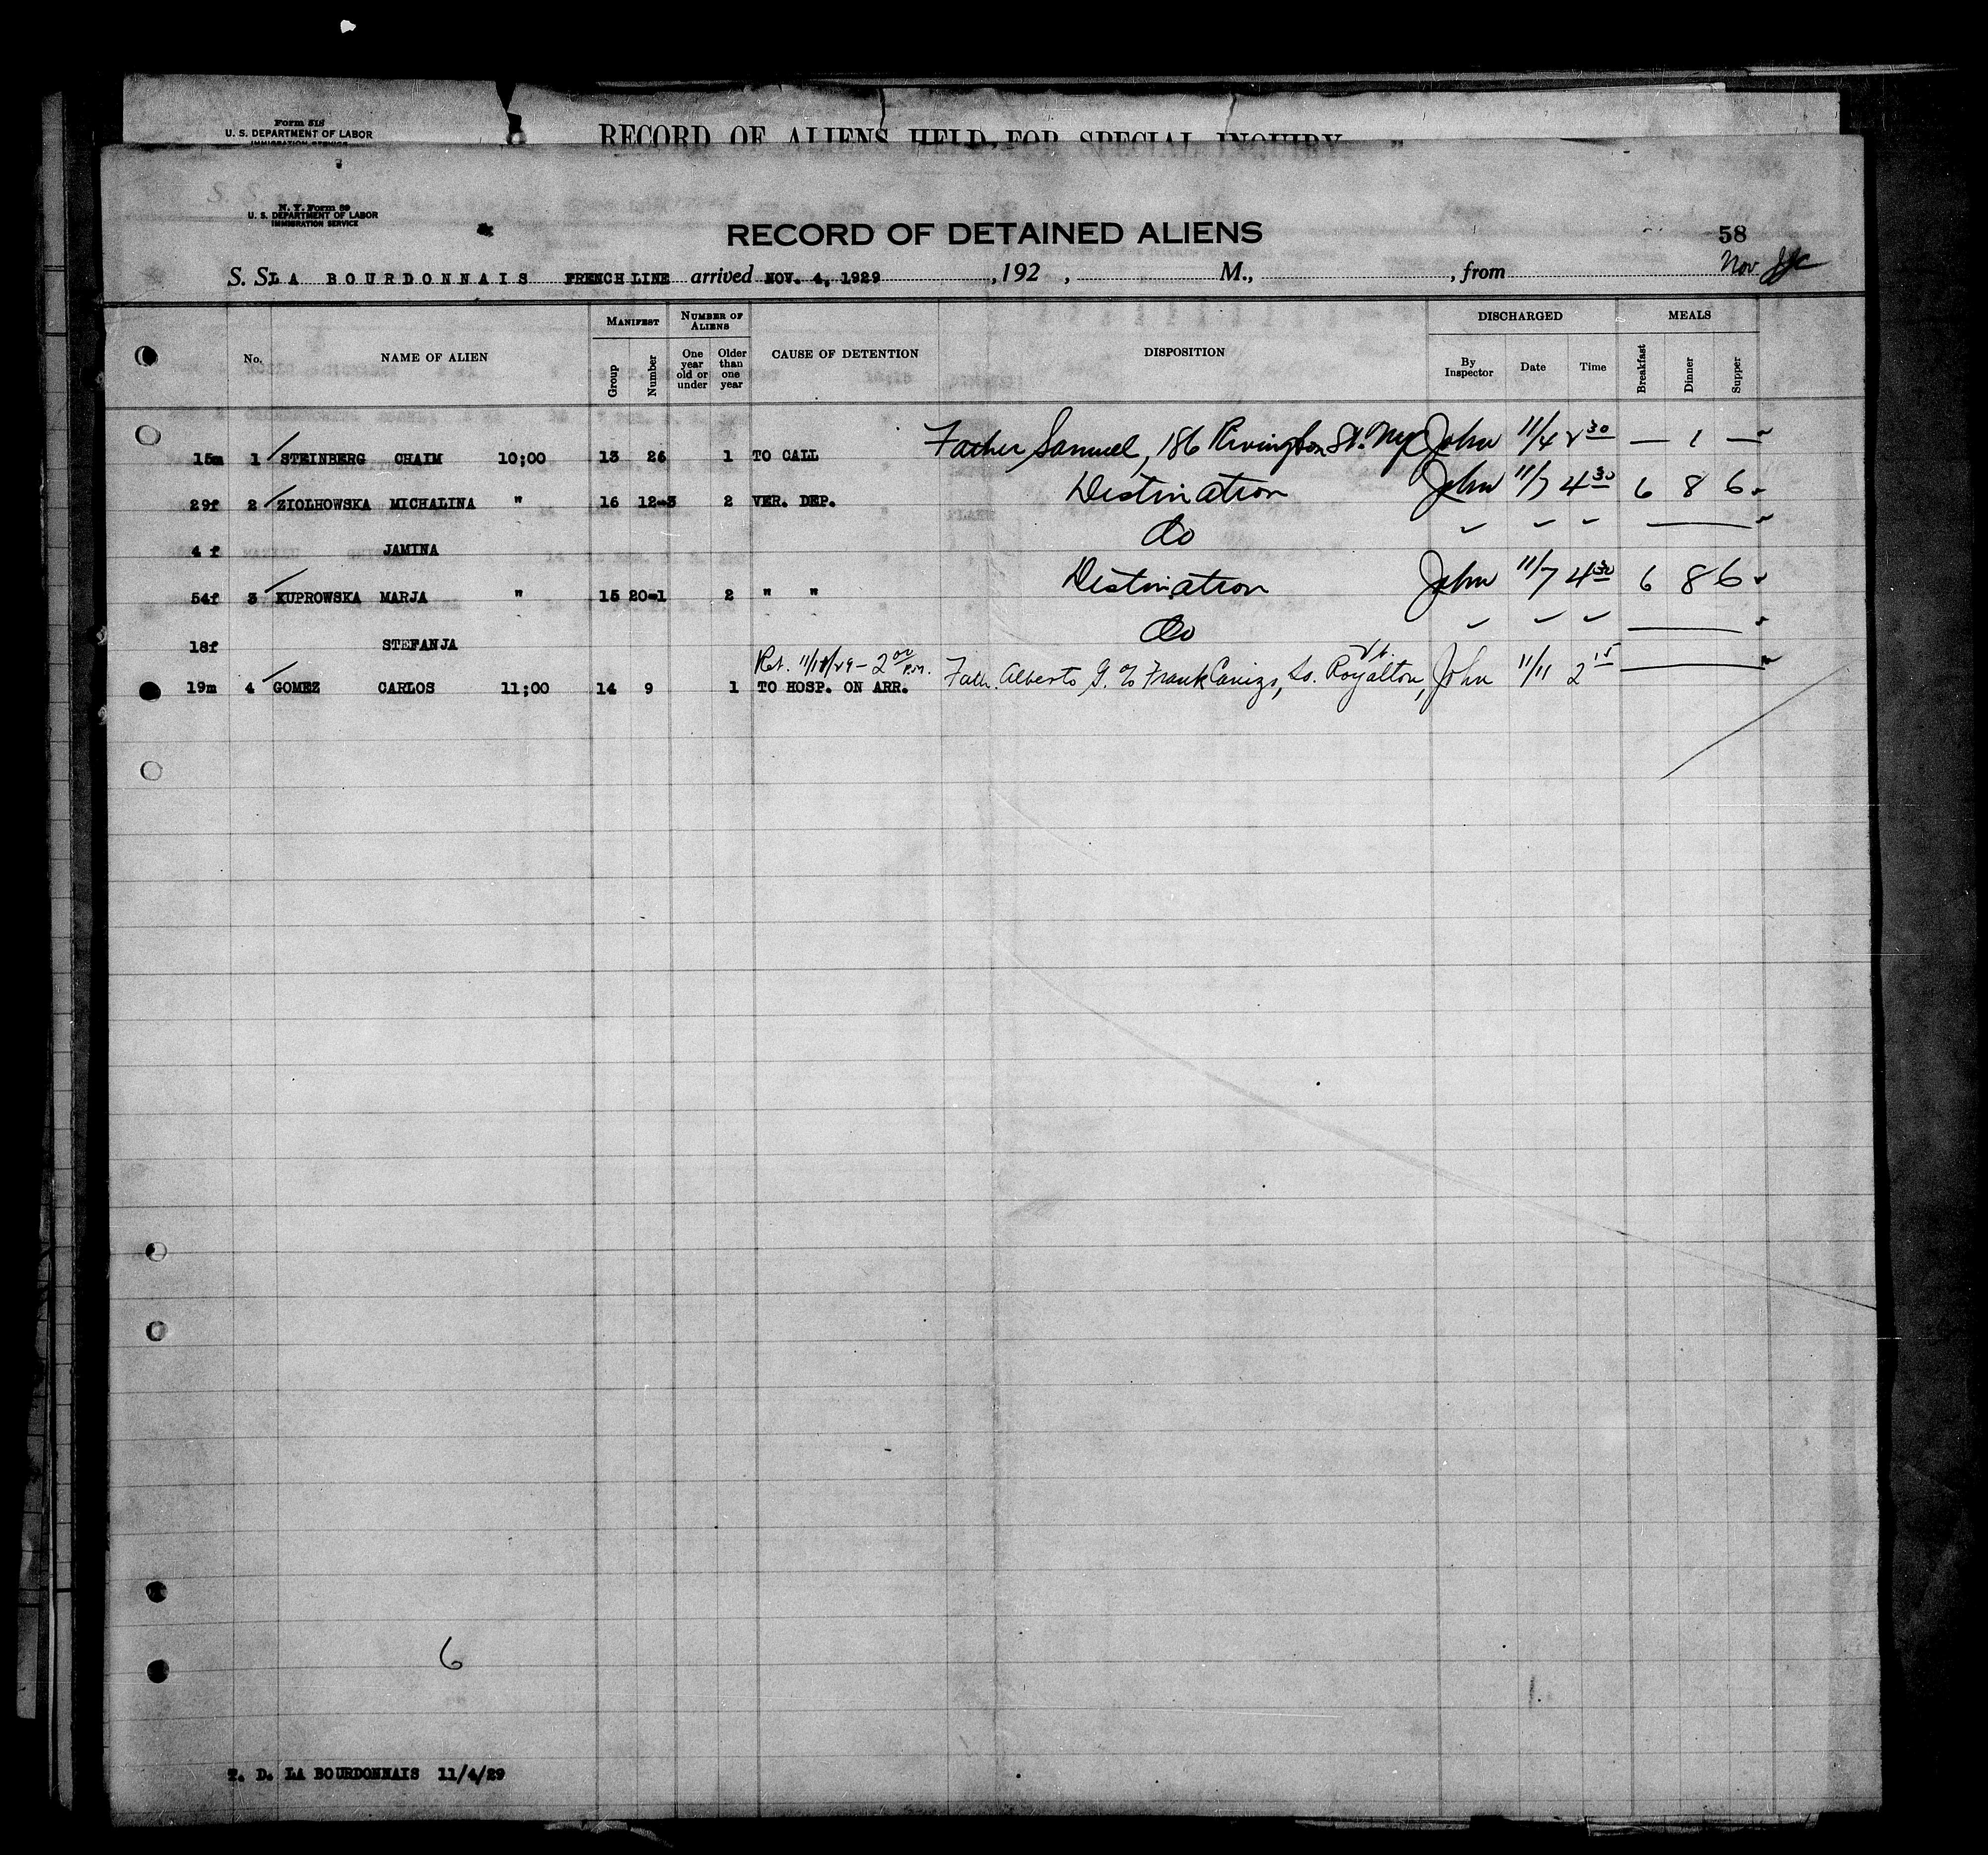 Form 518
U. S. DEPARTMENT OF LABOR
IMMIGRATION SERVICE
RECORD OF ALIENS HELD FOR SPECIAL INQUIRY
N. Y. Form 89
U. S. DEPARTMENT OF LABOR
IMMIGRATION SERVICE
RECORD OF DETAINED ALIENS
58
S. S. LA BOURDONNAIS FRENCH LINE arrived NOV. 4, 1929, 192 , M., , from Nov
MANIFEST NUMBER OF ALIENS DISCHARGED MEALS
No. NAME OF ALIEN Group Number One year old or under Older than one year CAUSE OF DETENTION DISPOSITION By Inspector Date Time Breakfast Dinner Supper
15m 1 STEINBERG CHAIM 10;00 13 26 1 TO CALL Father Samuel, 186 Rivington St. NYC John 11/4 2 30 — 1 —
29f 2 ZIOLHOWSKA MICHALINA " 16 12-3 2 VER. DEP. Destination John 11/7 4 30 6 8 6
4 f JAMINA do
54f 3 KUPROWSKA MARJA " 15 20-1 2 " " Destination John 11/7 4 30 6 8 6
18f STEFANJA do
Ret. 11/11/29 - 2 00 P.M. Vt.
19m 4 GOMEZ CARLOS 11;00 14 9 1 TO HOSP. ON ARR. Fath. Alberto G. % Frank So. Royalton, John 11/11 2 15
6
T. D. LA BOURDONNAIS 11/4/29